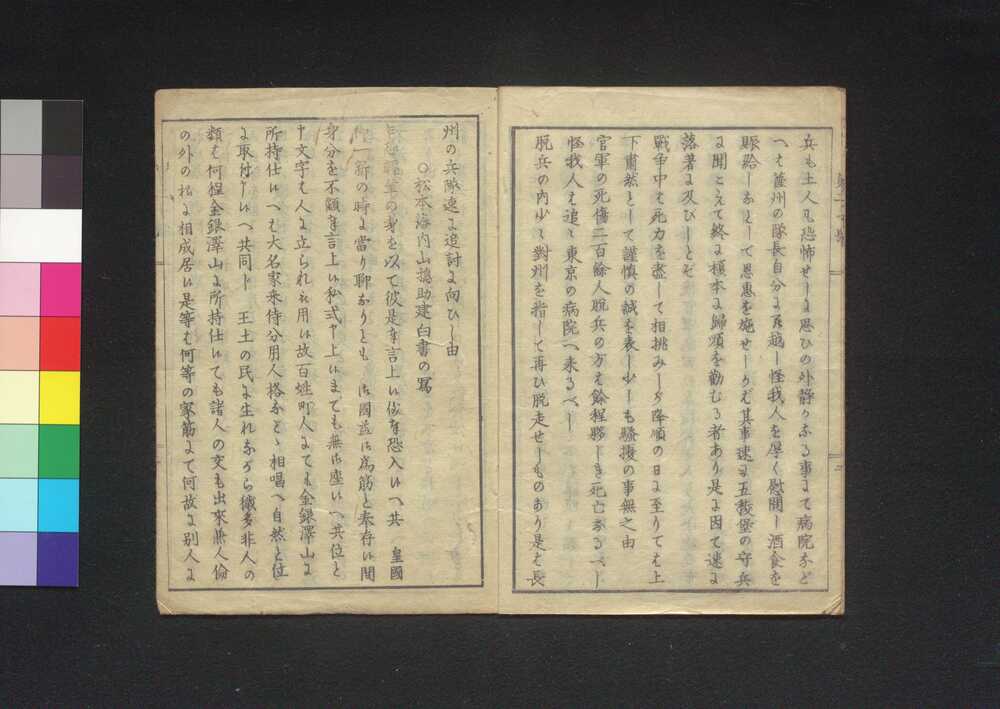 兵も土人も恐怖せしに思ひの外静かなる事にて病院など
へも薩州の隊長自分に罷越し怪我人を厚く慰問し酒食を
賑給しなどして恩惠を施せしかば其事速に五稜堡の守兵
に聞こえて終に榎本に歸順を勸むる者あり是に因て速に
落著に及びしとぞ
戰爭中も死力を盡して相挑みしが降順の日に至りても上
下肅然として謹慎の誠を表し少しも騒擾の事無之由
官軍の死傷二百餘人脱兵の方も餘程夥しき死亡なるべし
怪我人も追々東京の病院へ来るべし
脱兵の内少々對州を指して再び脱走せしものあり是も長
州の兵隊速に追討に向ひし由
○松本藩内山摠助建白書の寫
輕輩の身を以て彼是申言上い儀も恐入いへ共 皇國
御一新の時に當り聊なりとも 御國益御爲筋と奉存い間
身分を不顧申言上い私式申上いまでも無御座いへ共位と
申文字も人に立られ相用い故百姓町人にても金銀澤山に
所持仕いへも大名家来侍分用人格など相唱へ自然と位
に取付いへ共同じ 王土の民に生れながら穢多非人の
類も何程金銀澤山に所持仕いても諸人の交も出來兼人倫
の外の私に相成居い是等も何等の家筋にて何故に別人に